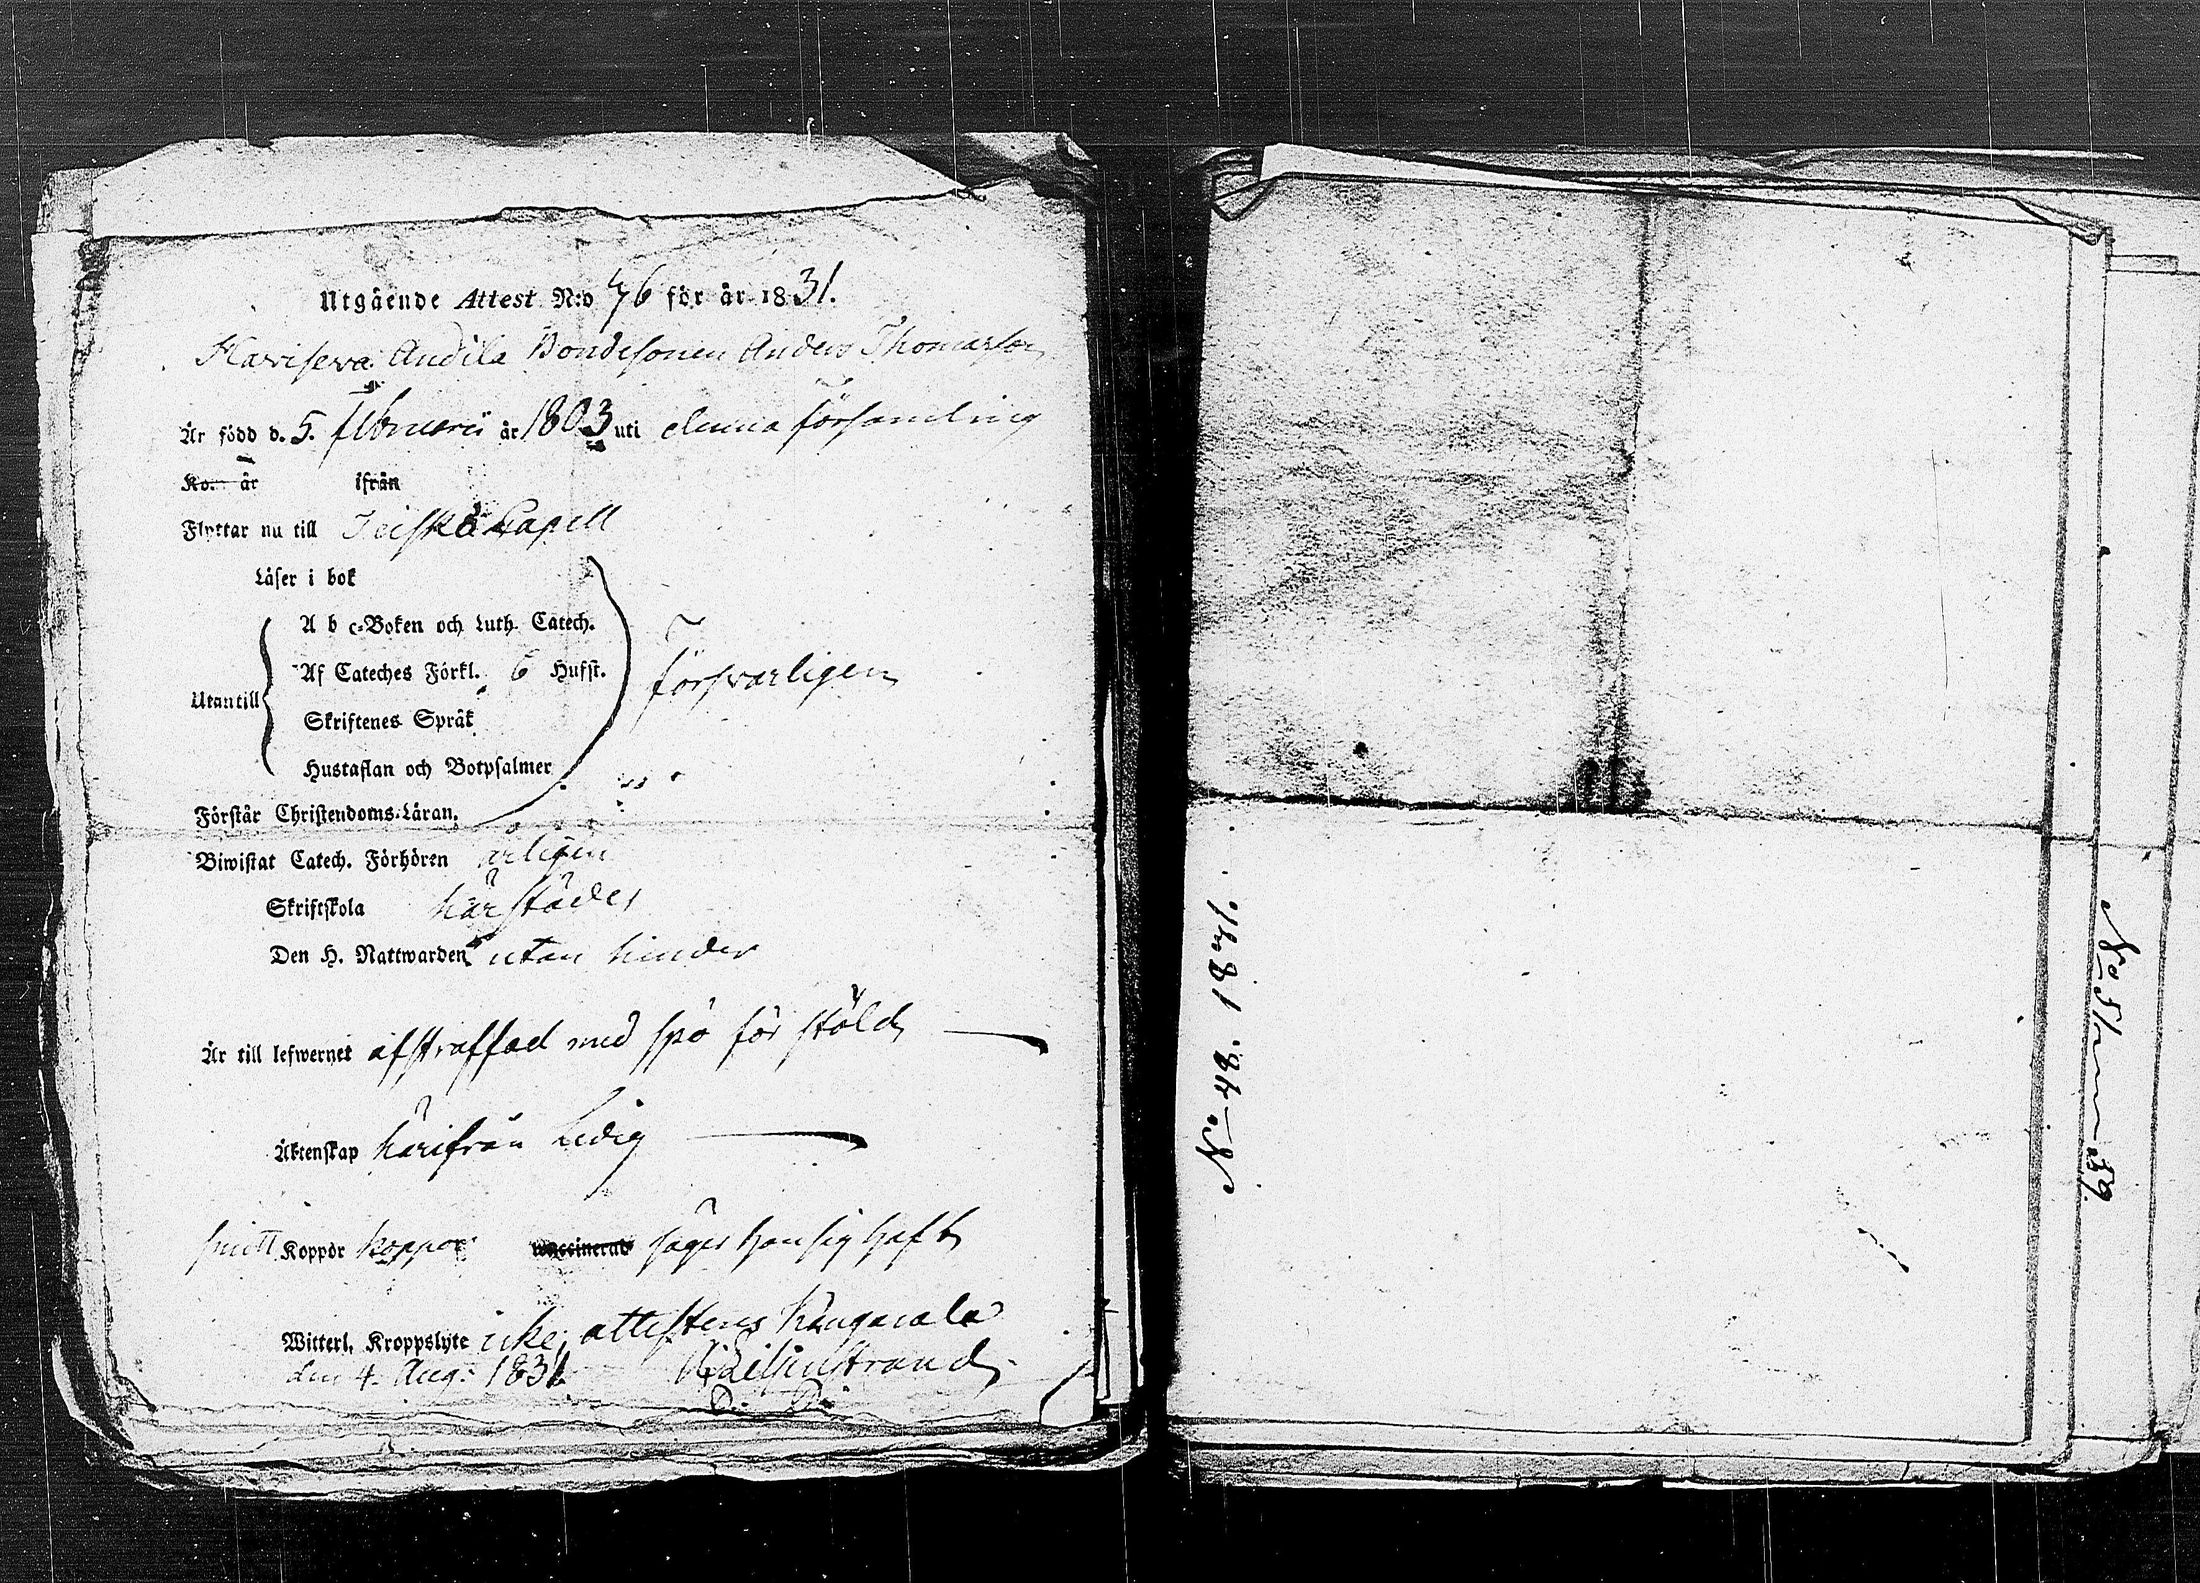 Utgående Attest N:o 76 för år 1831.
Haviseva Audila Bondesonen Anders Thomasson
Är född d. 5. Februarii år 1803 uti denna församling
Kom år ifrån
Flyttar nu till Teisko Capell
Läser i bok
A b c-Boken och Luth. Catech.
Af Cateches Förkl. 6 Hufst.
Utantill
Skriftenes Språk
försvarligen
Hustaflan och Botpsalmer
Förstår Christendoms-Läran.
Biwistat Catech. Förhören årligen
Skriftskola härstädes
Den H. Nattwarden utan hinder
Är till lefwernet afstraffad med spö för stöld
Äktenskap härifrån Ledig
smitt Koppor koppor vaccinerad säger han sig haft
Witterl. Kroppslyte icke, attesteras Kangasala
den 4. Aug: 1831
No 48. 1831